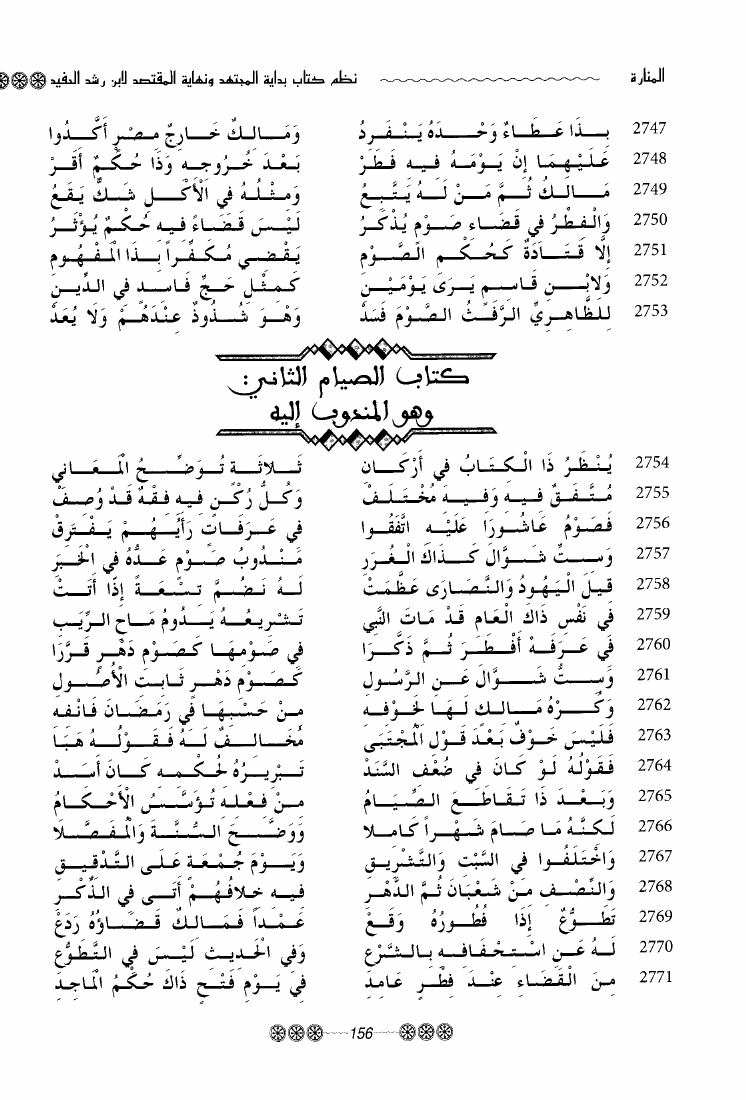 المنارة نظم كتاب بداية المجتهد ونهاية المقتصد لابن رشد الحفيد
2747 بِذَا عَطَاءٌ وَحْدَهُ يَنْفَرِدُ وَمَالِكٌ خَارِجَ مِصْرٍ أَكَّدُوا
2748 عَلَيْهِمَا إِنْ يَوْمَهُ فِيهِ فَطَرْ بَعْدَ خُرُوجِهِ وَذَا حُكْمٌ أَقَرْ
2749 مَالِكُ ثُمَّ مَنْ لَهُ يَتَّبِعُ وَمِثْلُهُ فِي الْأَكْلِ شَكٌّ يَقَعُ
2750 وَالْفِطْرُ فِي قَضَاءِ صَوْمٍ يُذْكَرُ لَيْسَ قَضَاءً فِيهِ حُكْمٌ يُؤْثَرُ
2751 إِلَّا قَتَادَةُ كَحُكْمِ الصَّوْمِ يَقْضِي مُكَفِّراً بِذَا الْمَفْهُومِ
2752 وَلِابْنِ قَاسِمٍ يَرَى يَوْمَيْنِ كَمِثْلِ حَجٍّ فَاسِدٍ فِي الدِّينِ
2753 لِلظَّاهِرِيِّ الرَّفَثُ الصَّوْمَ فَسَدْ وَهُوَ شُذُوذٌ عِنْدَهُمْ وَلَا يُعَدْ
كتاب الصيام الثاني:
وهو المندوب إليه
2754 يُنْظَرُ ذَا الْكِتَابُ فِي أَرْكَانِ ثَلَاثَةٍ تُوَضِّحُ الْمَعَانِي
2755 مُتَّفَقٌ فِيهِ وَفِيهِ مُخْتَلَفْ وَكُلُّ رُكْنٍ فِيهِ فِقْهٌ قَدْ وُصِفْ
2756 فَصَوْمُ عَاشُورَا عَلَيْهِ اتَّفَقُوا فِي عَرَفَاتَ رَأْيُهُمْ يَفْتَرِقُ
2757 وَسِتُّ شَوَّالٍ كَذَاكَ الْغُرَرِ مَنْدُوبُ صَوْمٍ عَدُّهُ فِي الْخَبَرِ
2758 قِيلَ الْيَهُودُ وَالنَّصَارَى عَظَّمَتْ لَهُ نَضُمُّ تِسْعَةً إِذَا أَتَتْ
2759 فِي نَفْسِ ذَاكَ الْعَامِ قَدْ مَاتَ النَّبِي تَشْرِيعُهُ يَدُومُ مَاحِ الرِّيَبِ
2760 فِي عَرَفَةْ أَفْطَرَ ثُمَّ ذَكَرَا فِي صَوْمِهَا كَصَوْمِ دَهْرٍ قَرَّرَا
2761 وَسِتُّ شَوَّالٍ عَنِ الرَّسُولِ كَصَوْمِ دَهْرٍ ثَابِتِ الْأُصُولِ
2762 وَكُرْهُ مَالِكٍ لَهَا لِخَوْفِهِ مِنْ حَسْبِهَا فِي رَمَضَانَ فَانْفِهِ
2763 فَلَيْسَ خَوْفٌ بَعْدَ قَوْلِ الْمُجْتَبَى مُخَالِفٌ لَهُ فَقَوْلُهُ هَبَا
2764 فَقَوْلُهُ لَوْ كَانَ فِي ضُعْفِ السَّنَدْ تَبْرِيرُهُ لِحُكْمِهِ كَانَ أَسَدْ
2765 وَبَعْدَ ذَا تَقَاطُعُ الصِّيَامُ مِنْ فِعْلِهِ تُؤَسَّسُ الْأَحْكَامُ
2766 لَكِنَّهُ مَا صَامَ شَهْراً كَامِلَا وَوَضَّحَ السُّنَّةَ وَالْمُفَصَّلَا
2767 وَاخْتَلَفُوا فِي السَّبْتِ وَالتَّشْرِيقِ وَيَوْمِ جُمْعَةٍ عَلَى التَّدْقِيقِ
2768 وَالنِّصْفِ مِنْ شَعْبَانَ ثُمَّ الدَّهْرِ فِيهِ خِلَافُهُمْ أَتَى فِي الذِّكْرِ
2769 تَطَوُّعٌ إِذَا فُطُورُهُ وَقَعْ عَمْداً فَمَالِكٌ قَضَاؤُهُ رَدَعْ
2770 لَهُ عَنِ اسْتِخْفَافِهِ بِالشَّرْعِ وَفِي الْحَدِيثِ لَيْسَ فِي التَّطَوُّعِ
2771 مِنَ الْقَضَاءِ عِنْدَ فِطْرِ عَامِدِ فِي يَوْمِ فَتْحٍ ذَاكَ حُكْمُ الْمَاجِدِ
156